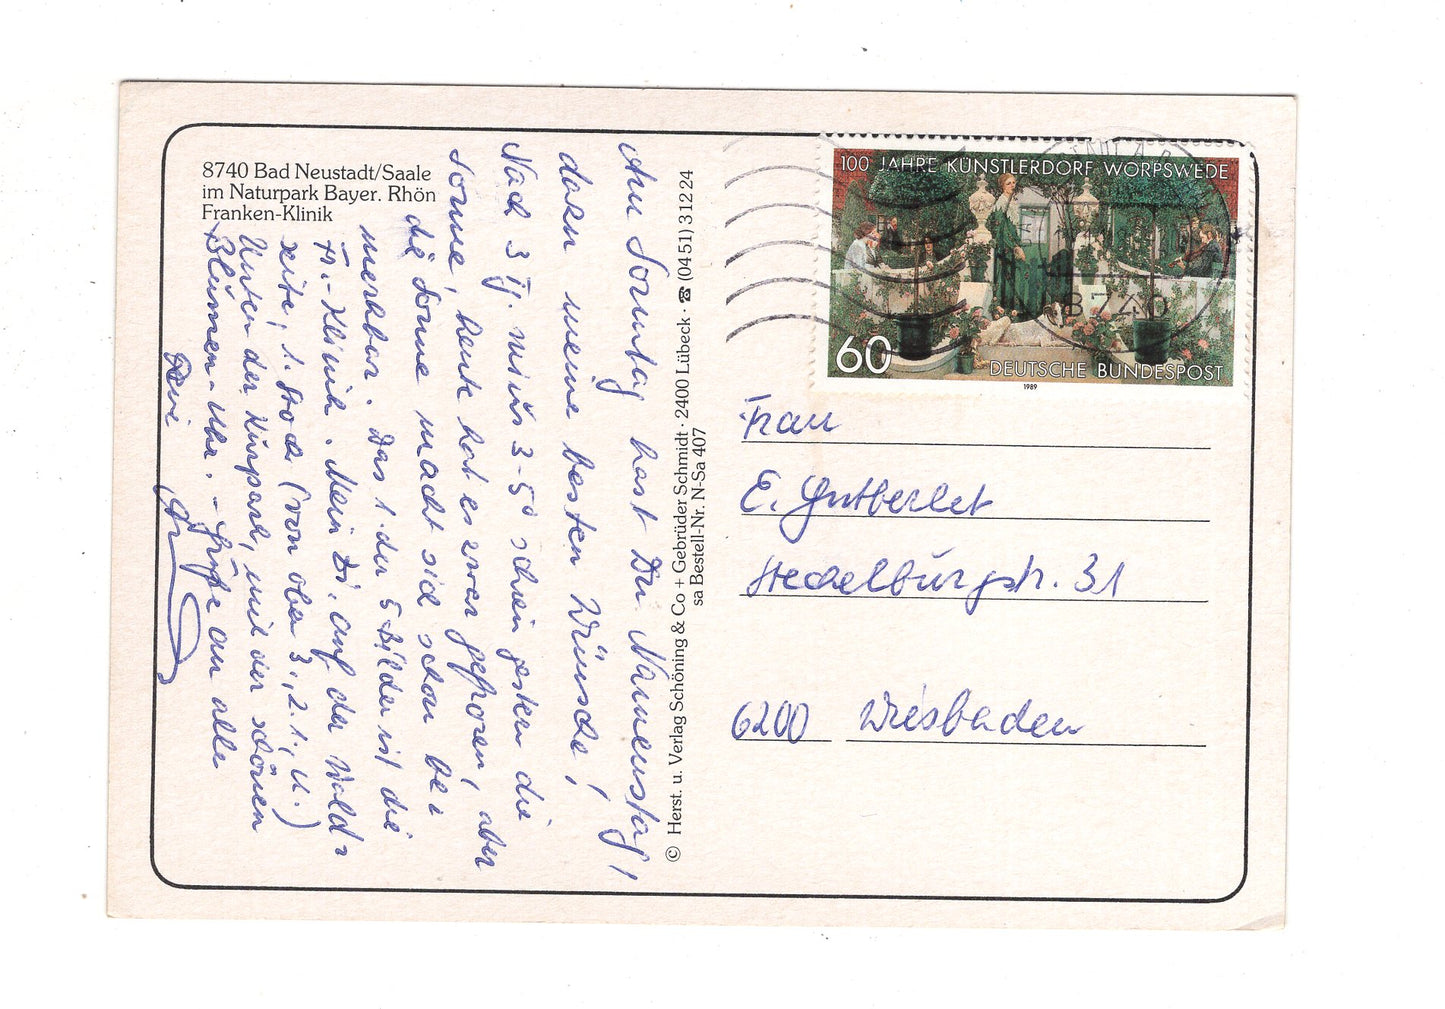 8740 Bad Neustadt/Saale
im Naturpark Bayer. Rhön
Franken-Klinik
Am Sonntag hast Du Namenstag,
dazu meine besten Wünsche!
Nach 3 Tg. minus 3-5° schien gestern die
Sonne, heute hat es zwar gefroren, aber
die Sonne macht sich schon be=
merkbar. Das 1. der 5 Bilder ist die
Fr.-Klinik. Mein Zi. auf der Wald=
seite, 1. Stock (von oben 3., 2. 1., u.)
Unten der Kurpark, mit der schönen
Blumen-Uhr. - Grüße an alle
© Herst. u. Verlag Schöning & Co + Gebrüder Schmidt · 2400 Lübeck · ☎ (0451) 3 12 24
sa Bestell-Nr. N-Sa 407
100 JAHRE KÜNSTLERDORF WORPSWEDE
60
DEUTSCHE BUNDESPOST
1989
8740
Frau
E. Gutberlet
str. 31
6200 Wiesbaden